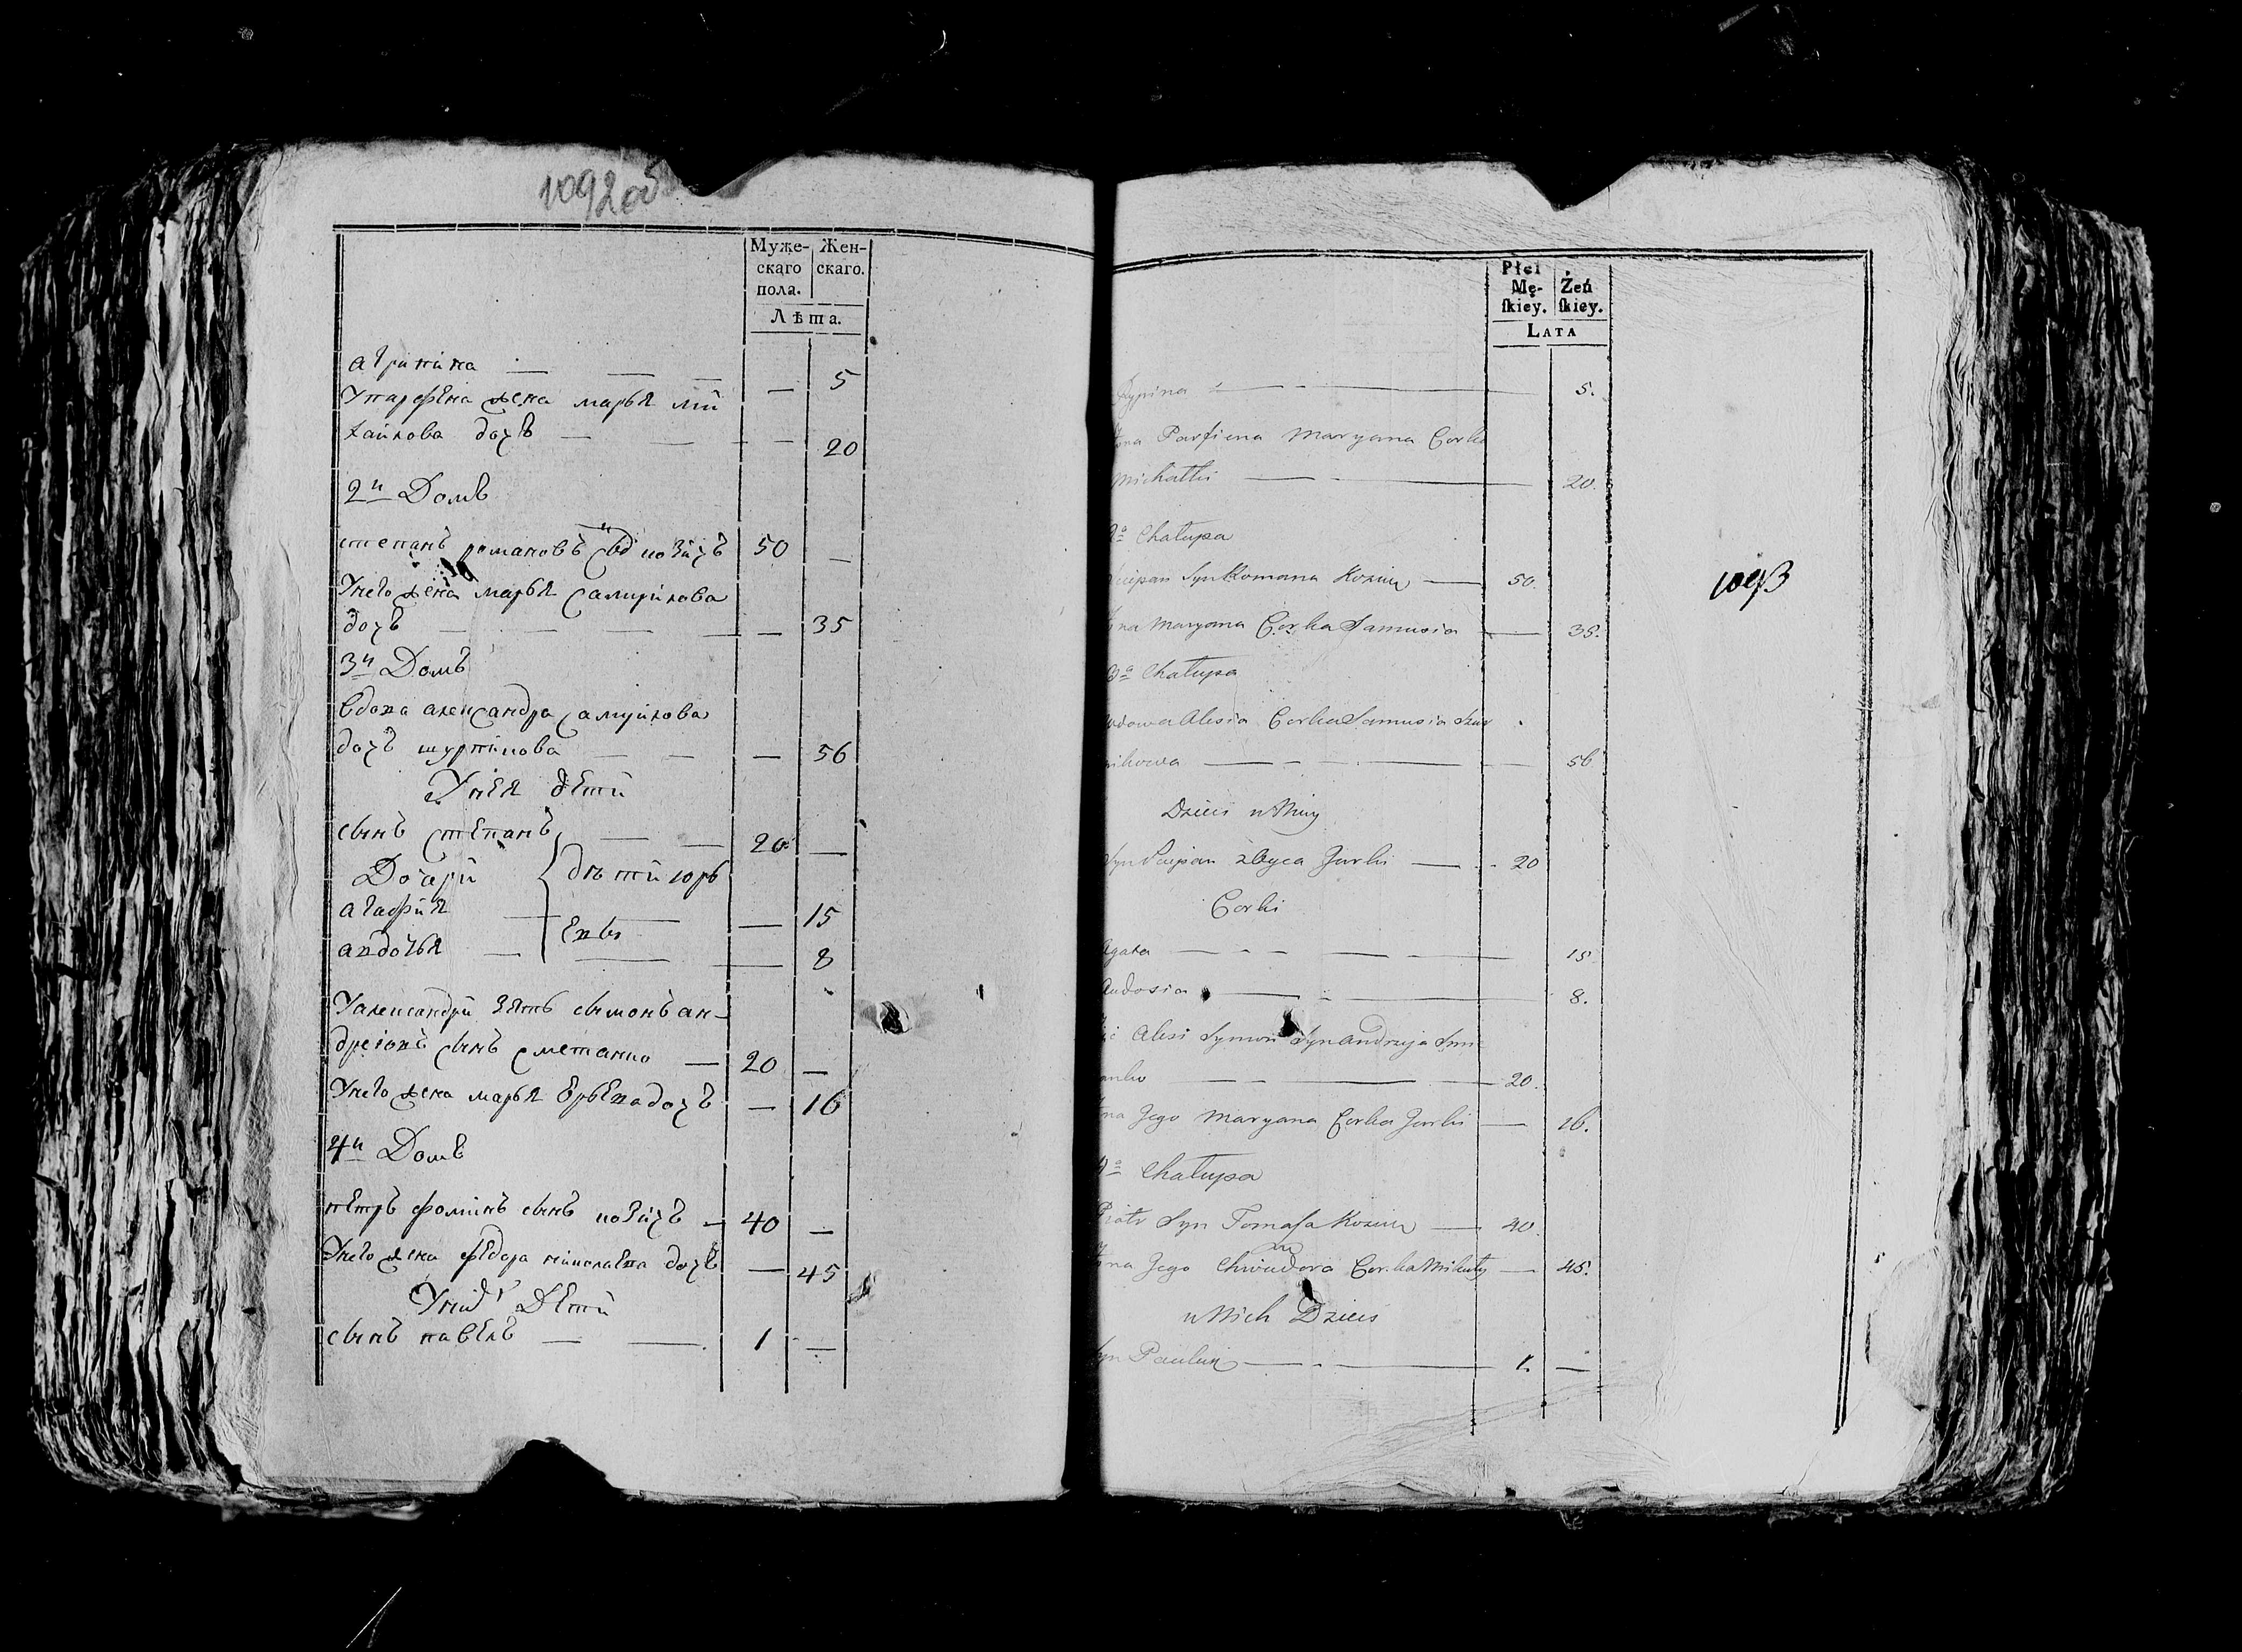 1092 об
Муже- Жен-
скаго скаго.
пола.
Лѣта.
агрипина — — — 5
Упарфена жена марья ми
хайлова дочь — — — 20
2й Домъ
степанъ романовъ сынъ козичъ 50 —
Унего жена марья самуйлова
дочь — — — 35
3й Домъ
вдова александра самуйлова
дочь шурпикова — — — 56
Унея дети
сынъ степанъ — — 20 —
Дочери
агафия — — 15
авдотья — — 8
дѣти юрь
евы
Уалександри зять сымонъ ан-
дреювъ сынъ сметанко — 20 —
Унего жена марья юрьева дочъ — 16
4й Домъ
петръ фоминъ сынъ козичъ — 40 —
Унего жена федора дочь — 45
Унихъ Дети
сынъ павелъ — — 1 —
Płci
Mę- Żeń
ſkiey. ſkiey.
LATA
5.
Parfiena Maryana Corka
Michałki — 20.
2a Chałupa
Syn Romana Kozicz — 50.
Maryana Corka Samusia — 35.
3a Chałupa
Alesia Corka Samusia Szur
56
Dzieci u Niey
Syn Sciepan z Oyca Jurki — 20
Corki
Agata — 15
Audosia — 8.
Alesi Symon Syn Andrzeja Sm
20.
Jego Maryana Corka Jurki — 16.
4a Chałupa
Piotr Syn Tomaſa Kozicz — 40.
Jego Chwiedora Corka Mikity — 45.
u Nich Dzieci
Syn Pauluk — 1. —
1093